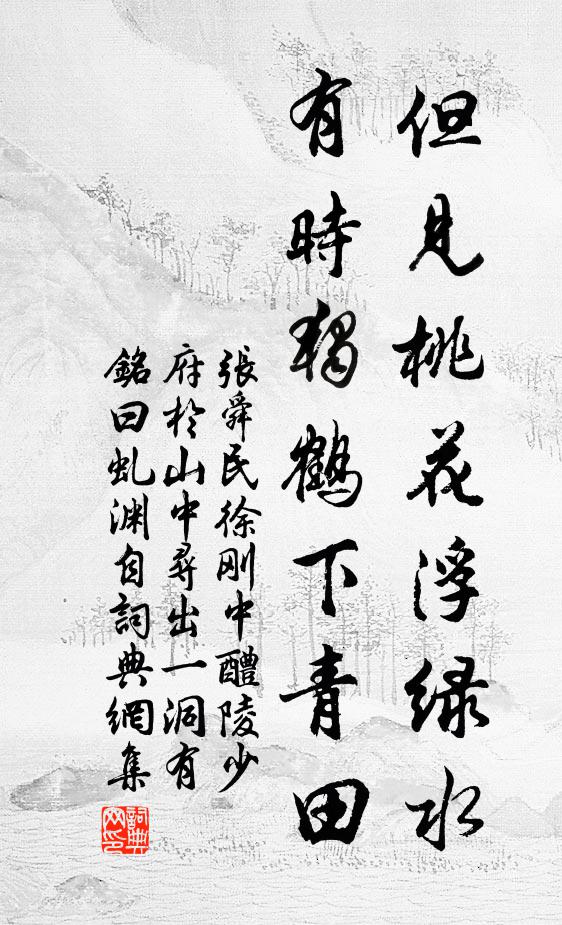 但見桃花浮緑水
有時獨鶴下青田
張舜民徐刚中醴陵少
府於山中尋出一洞有
銘曰虬渊自詞典網集
詞典
网印